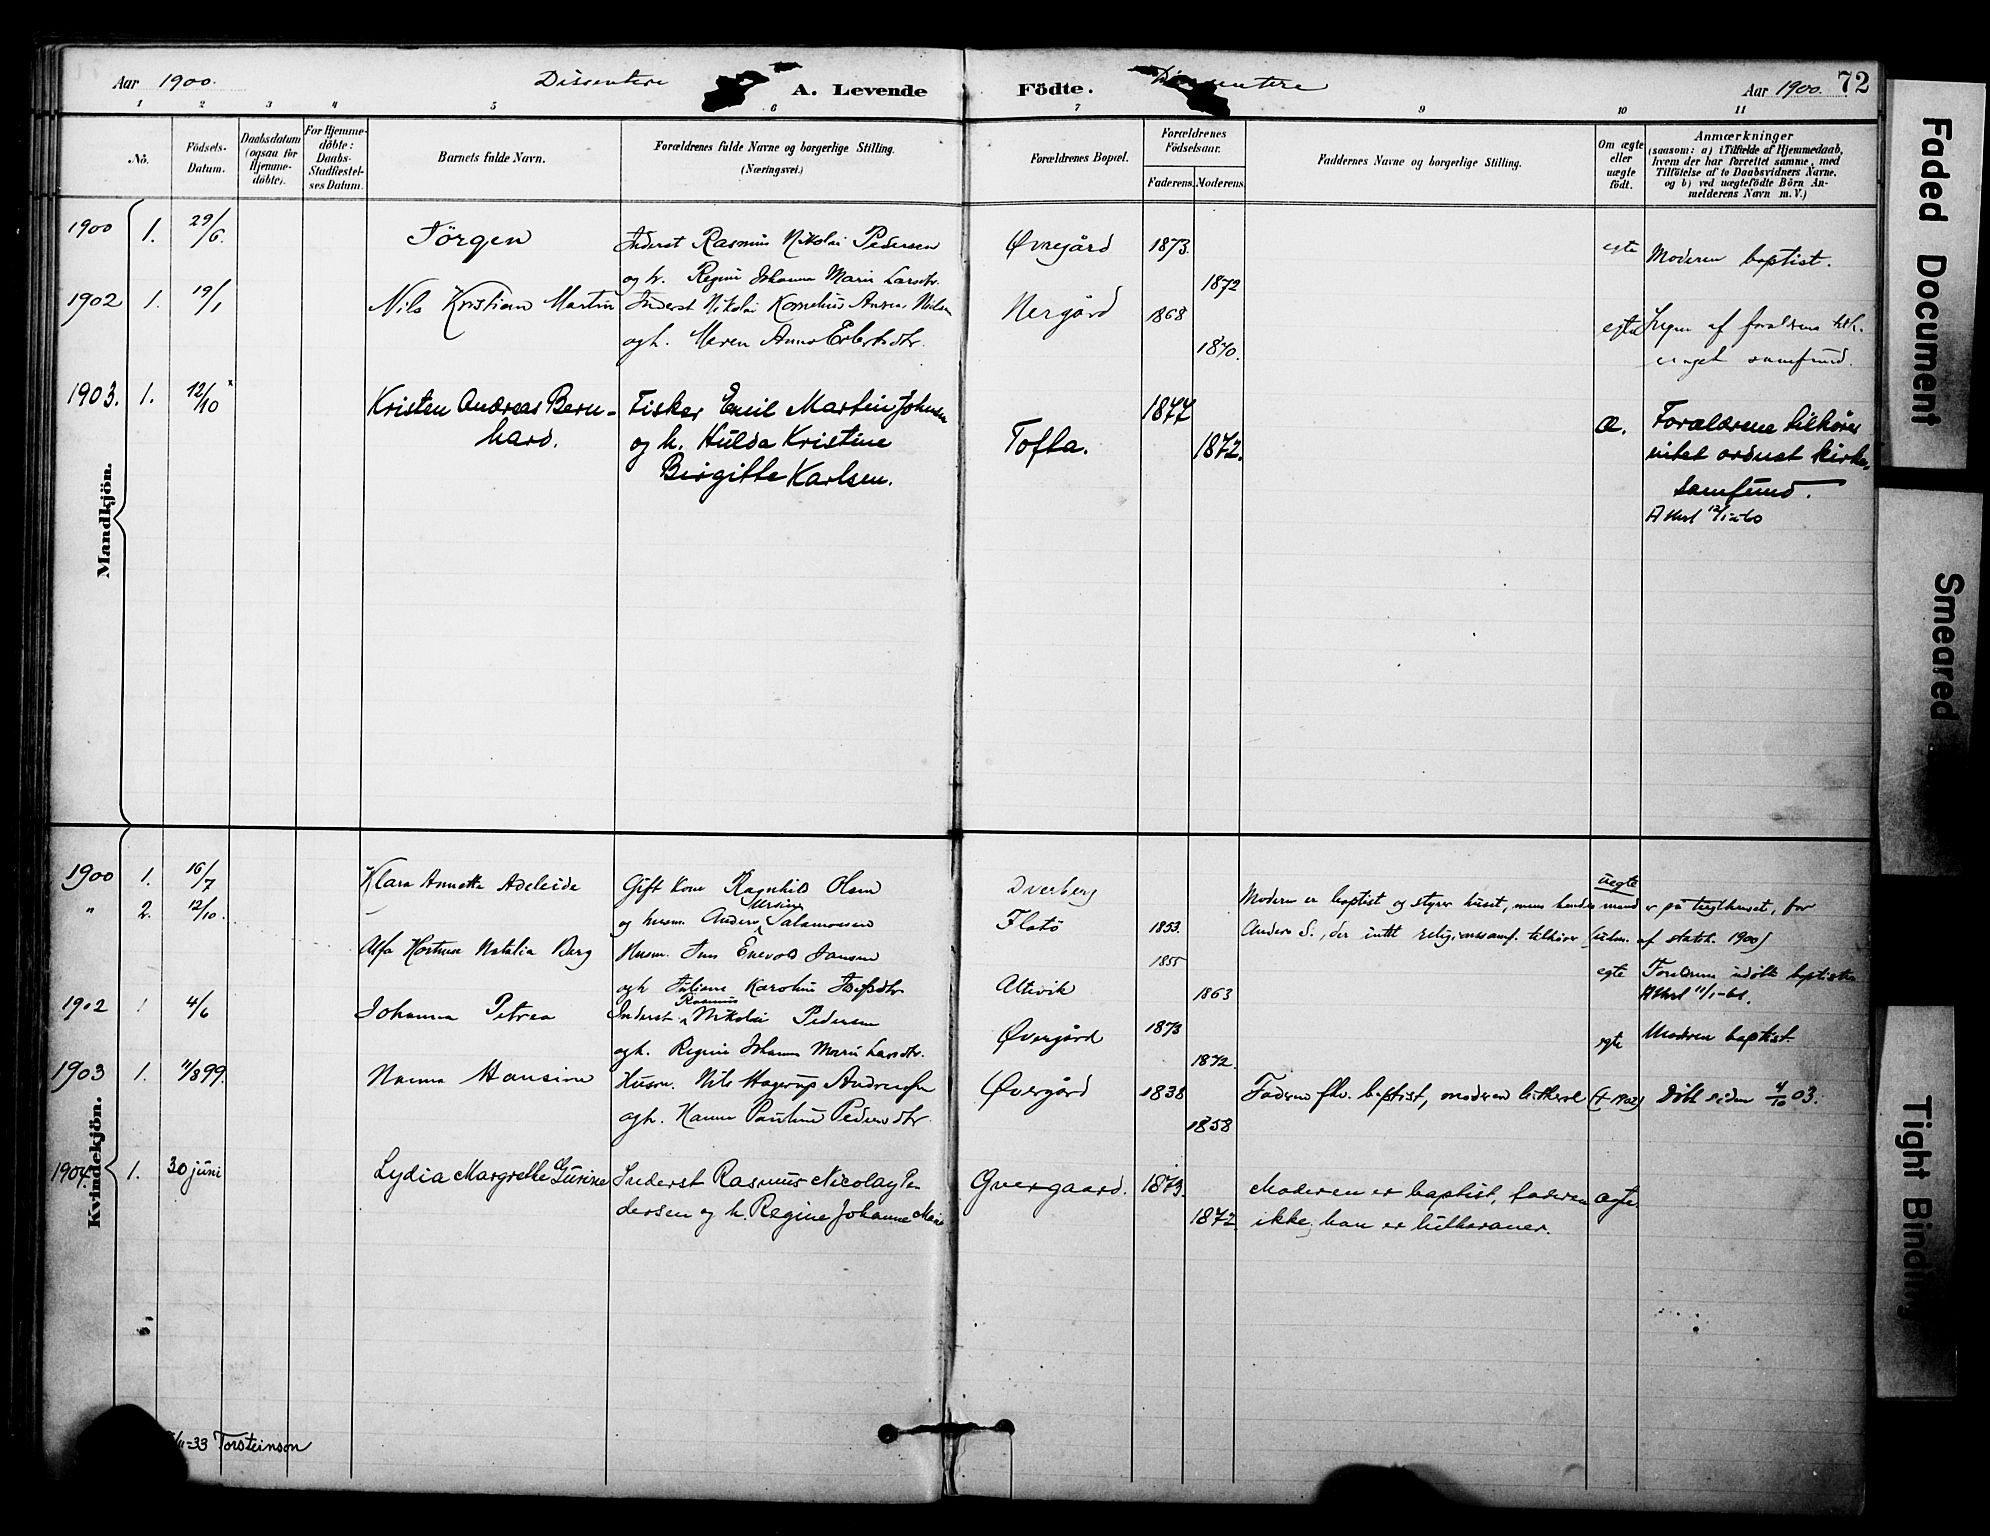 Aar 1900. Dissentere A. Levende Födte. Dissentere Aar 1900. 72
1 2 3 4 5 6 7 9 10 11
No.
Födsels-
Datum.
Daabsdatum
(ogsaa for
Hjemme-
döbte).
For Hjemme-
döbte:
Daabs-
Stadfæstel-
ses Datum.
Barnets fulde Navn.
Forældrenes fulde Navne og borgerlige Stilling.
(Næringsvei.)
Forældrenes Bopæl.
Forældrenes
Födselsaar.
Faderens. Moderens.
Faddernes Navne og borgerlige Stilling.
Om ægte
eller
uægte
födt.
Anmærkninger
(saasom: a) i Tilfælde af Hjemmedaab,
hvem der har forrettet samme, med
Tilföielse af to Daabsvidners Navne,
og b) ved uægtefödte Börn An-
melderens Navn m. V.)
Mandkjön.
1900 1. 29/6. Jörgen Inderst Rasmus Nikolai Pedersen Øvregård 1873. egte Moderen baptist.
og h. Regine Johanna Marie Larsdtr. 1872
1902 1. 19/1 Nils Kristian Martin Inderst Nikolai Kornelius Nilsen Nergård 1868 egte Ingen af foraldrene tilh.
og h. Maren Anna 1870. noget samfund.
1903. 1. 12/10 Kristen Andreas Bern- Fisker Emil Martin Johnsen 1877 æ. Forældrene tilhörer
hard. og h. Hulda Kristine Tofta. 1872. intet ordnet kirke-
Birgitte Karlsen. samfund.
Attest 12/1-60
Kvindekjön.
1900 1. 16/7 Klara Annette Adeleide Gift kone Ragnhild Olsen Dverberg uegte
Moderen er baptist og styrer huset, mens hendes mand er på tugthuset, for
" 2. 12/10. og husm. Anders Ursin Salamonsen Flatö 1853. Anders S., der intet religionssamf. tilhörer (udm. af statsk. 1900)
Alfa Hortense Natalia Berg Husm. Jens Enevold Jansen 1855 egte Foraldrene udöbte baptister
og h Juliane Karoline Altevik 1863 Attest 11/1-61.
1902 1 4/6 Johanna Petrea Inderst Rasmus Nikolai Pedersen Øvergård 1873 egte Moderen baptist
og h. Regine Johanna Marie Larsdtr. 1872.
1903 1. 11/8 99. Nanna Hansine Husm. Nils Hagerup Andreasen Øvergård 1838 Faderen fhv. baptist, moderen luthersk (+ 1902) Döbt siden 4/10 03.
og h. Hanna Pauline Pedersdtr. 1858
1904. 1. 30 juni Lydia Margrethe Gurine Inderst Rasmus Nicolay Pe- Øvergaard. 1873. Moderen er baptist, faderen ægte
dersen og h. Regine Johanne Marie 1872 ikke, han er lutheraner.
/11-33 Torsteinson
Faded Document
Smeared
Tight Binding